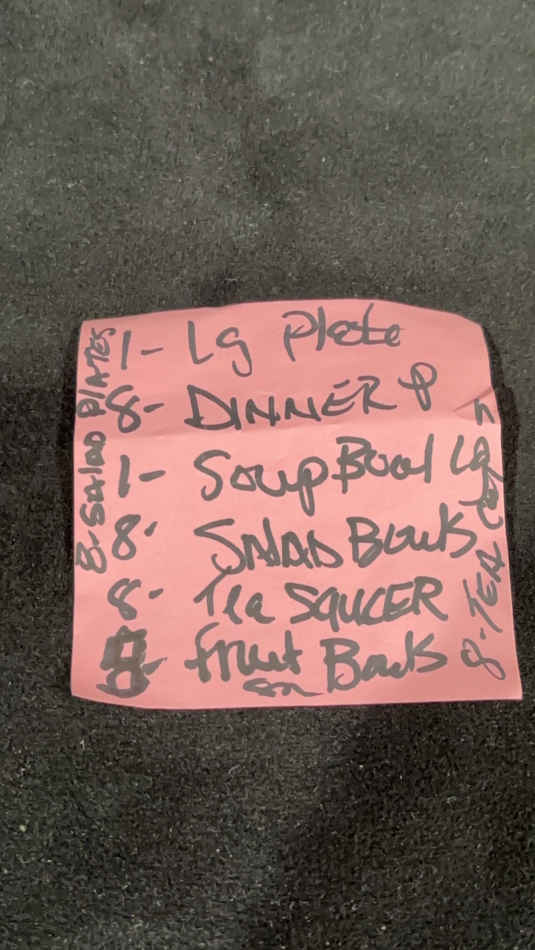 1- Lg Plate
8- DINNER P
1- Soup Bowl Lg
8- SALAD Bowls
8- Tea SAUCER
8- fruit Bowls
sm
8-SALAD PLATES
8-TEA Cups